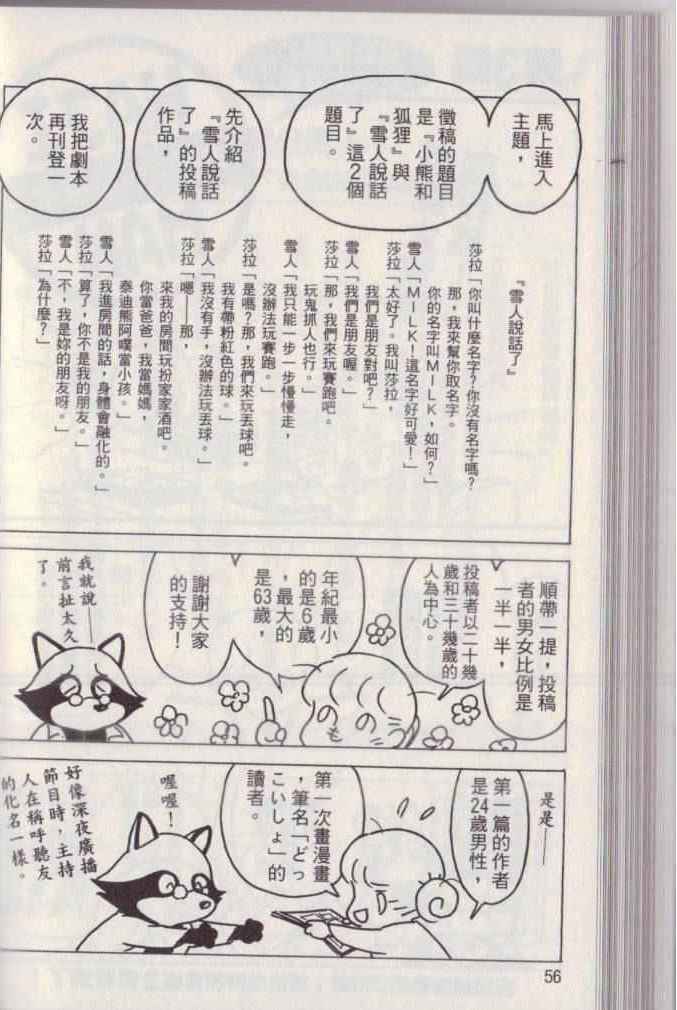 馬上進入
主題，
徵稿的題目
是『小熊和
狐狸』與
『雪人說話
了』這2個
題目。
先介紹
『雪人說話
了』的投稿
作品，
我把劇本
再刊登一
次。
『雪人說話了』
莎拉「你叫什麼名字？你沒有名字嗎？
那，我來幫你取名字。
你的名字叫MILK，如何？」
雪人「MILK！這名字好可愛！」
莎拉「太好了。我叫莎拉，
我們是朋友對吧？」
雪人「我們是朋友喔。」
莎拉「那，我們來玩賽跑吧。
玩鬼抓人也行。」
雪人「我只能一步一步慢慢走，
沒辦法玩賽跑。」
莎拉「是嗎？那，我們來玩丟球吧。
我有帶粉紅色的球。」
雪人「我沒有手，沒辦法玩丟球。」
莎拉「嗯—那，
來我的房間玩扮家家酒吧。
你當爸爸，我當媽媽，
泰迪熊阿噗當小孩。」
雪人「我進房間的話，身體會融化的。」
莎拉「算了，你不是我的朋友。」
雪人「不，我是妳的朋友呀。」
莎拉「為什麼？」
順帶一提，投稿
者的男女比例是
一半一半，
投稿者以二十幾
歲和三十幾歲的
人為中心。
年紀最小
的是6歲
，最大的
是63歲，
謝謝大家
的支持！
我就說——
前言扯太久
了。
是是——
第一篇的作者
是24歲男性，
第一次畫漫畫
，筆名「どっ
こいしょ」的
讀者。
喔喔！
好像深夜廣播
節目時，主持
人在稱呼聽友
的化名一樣。
56